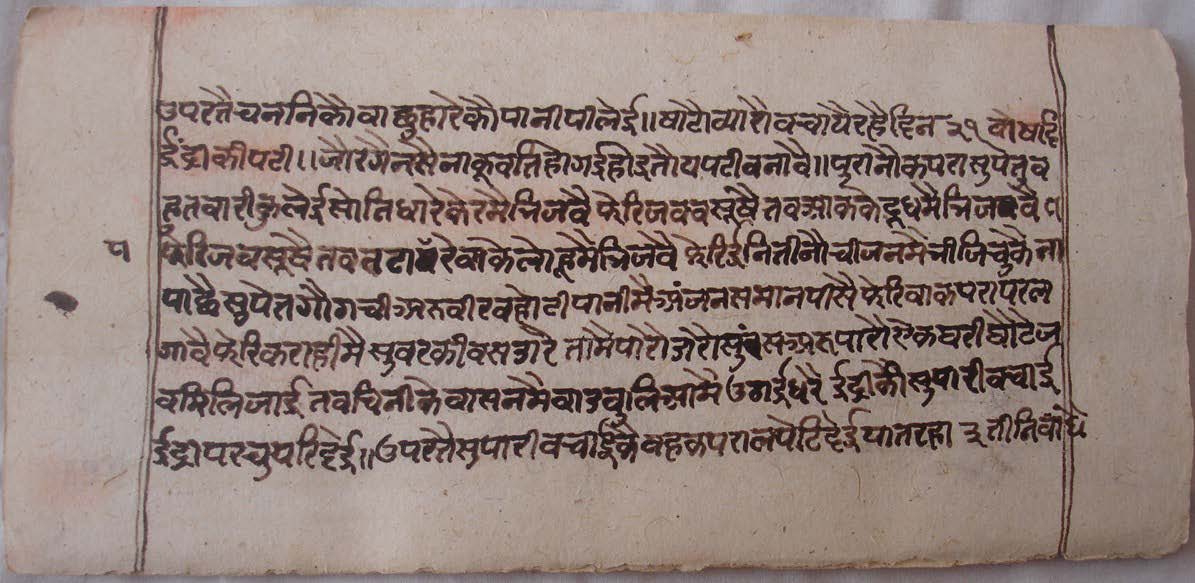 उपरतै चननिकौ वा छुहारेकौ पानी पीलेई॥ षाटो ष्यारौ वचायै रहै दिन २१ वौर्षादि
ईंद्री की पटी।। जौरगैनसै नाकूवति हो गई हो इ तौ य पटी वनावै॥ पुरानौ कपरा सुपेतुव
हुतवारीकुलेई सो तिधारेके रमै भिजवै फेरि जव वसूषै तव आकके दूधमै भिजवै १
फेरि जव सूषै तव तटा रैवाके लोहूमै भिजेवै फेरि ईनि तीनौ चीजनमे भीजि चुकै ता
पाछै सुपेत गौगची अरु वीरवहोटी पानीमै अंजन समान पीसै फेरि वा कपरा पर ल
गावै फेरि कराहीमै सुवरकी वसडारै तामै पारो गेरौ सुं स अरु पारो एक घरी घौटै ज
व मिलि जाई तव चिनी के वासनमै वा उ वालिआमै उठाई धरै ईंद्री की सुपारी वचाई
ईंद्री पर चुपरि देई॥ उपरतै सुपारी वचाईकै वह कपरा लपेटि देई पात रहा इ ती निवाँधे
१